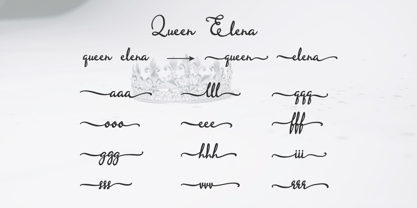 Queen Elena
queen elena → queen elena
aaa lll qqq
ooo eee fff
ggg hhh iii
sss vvv